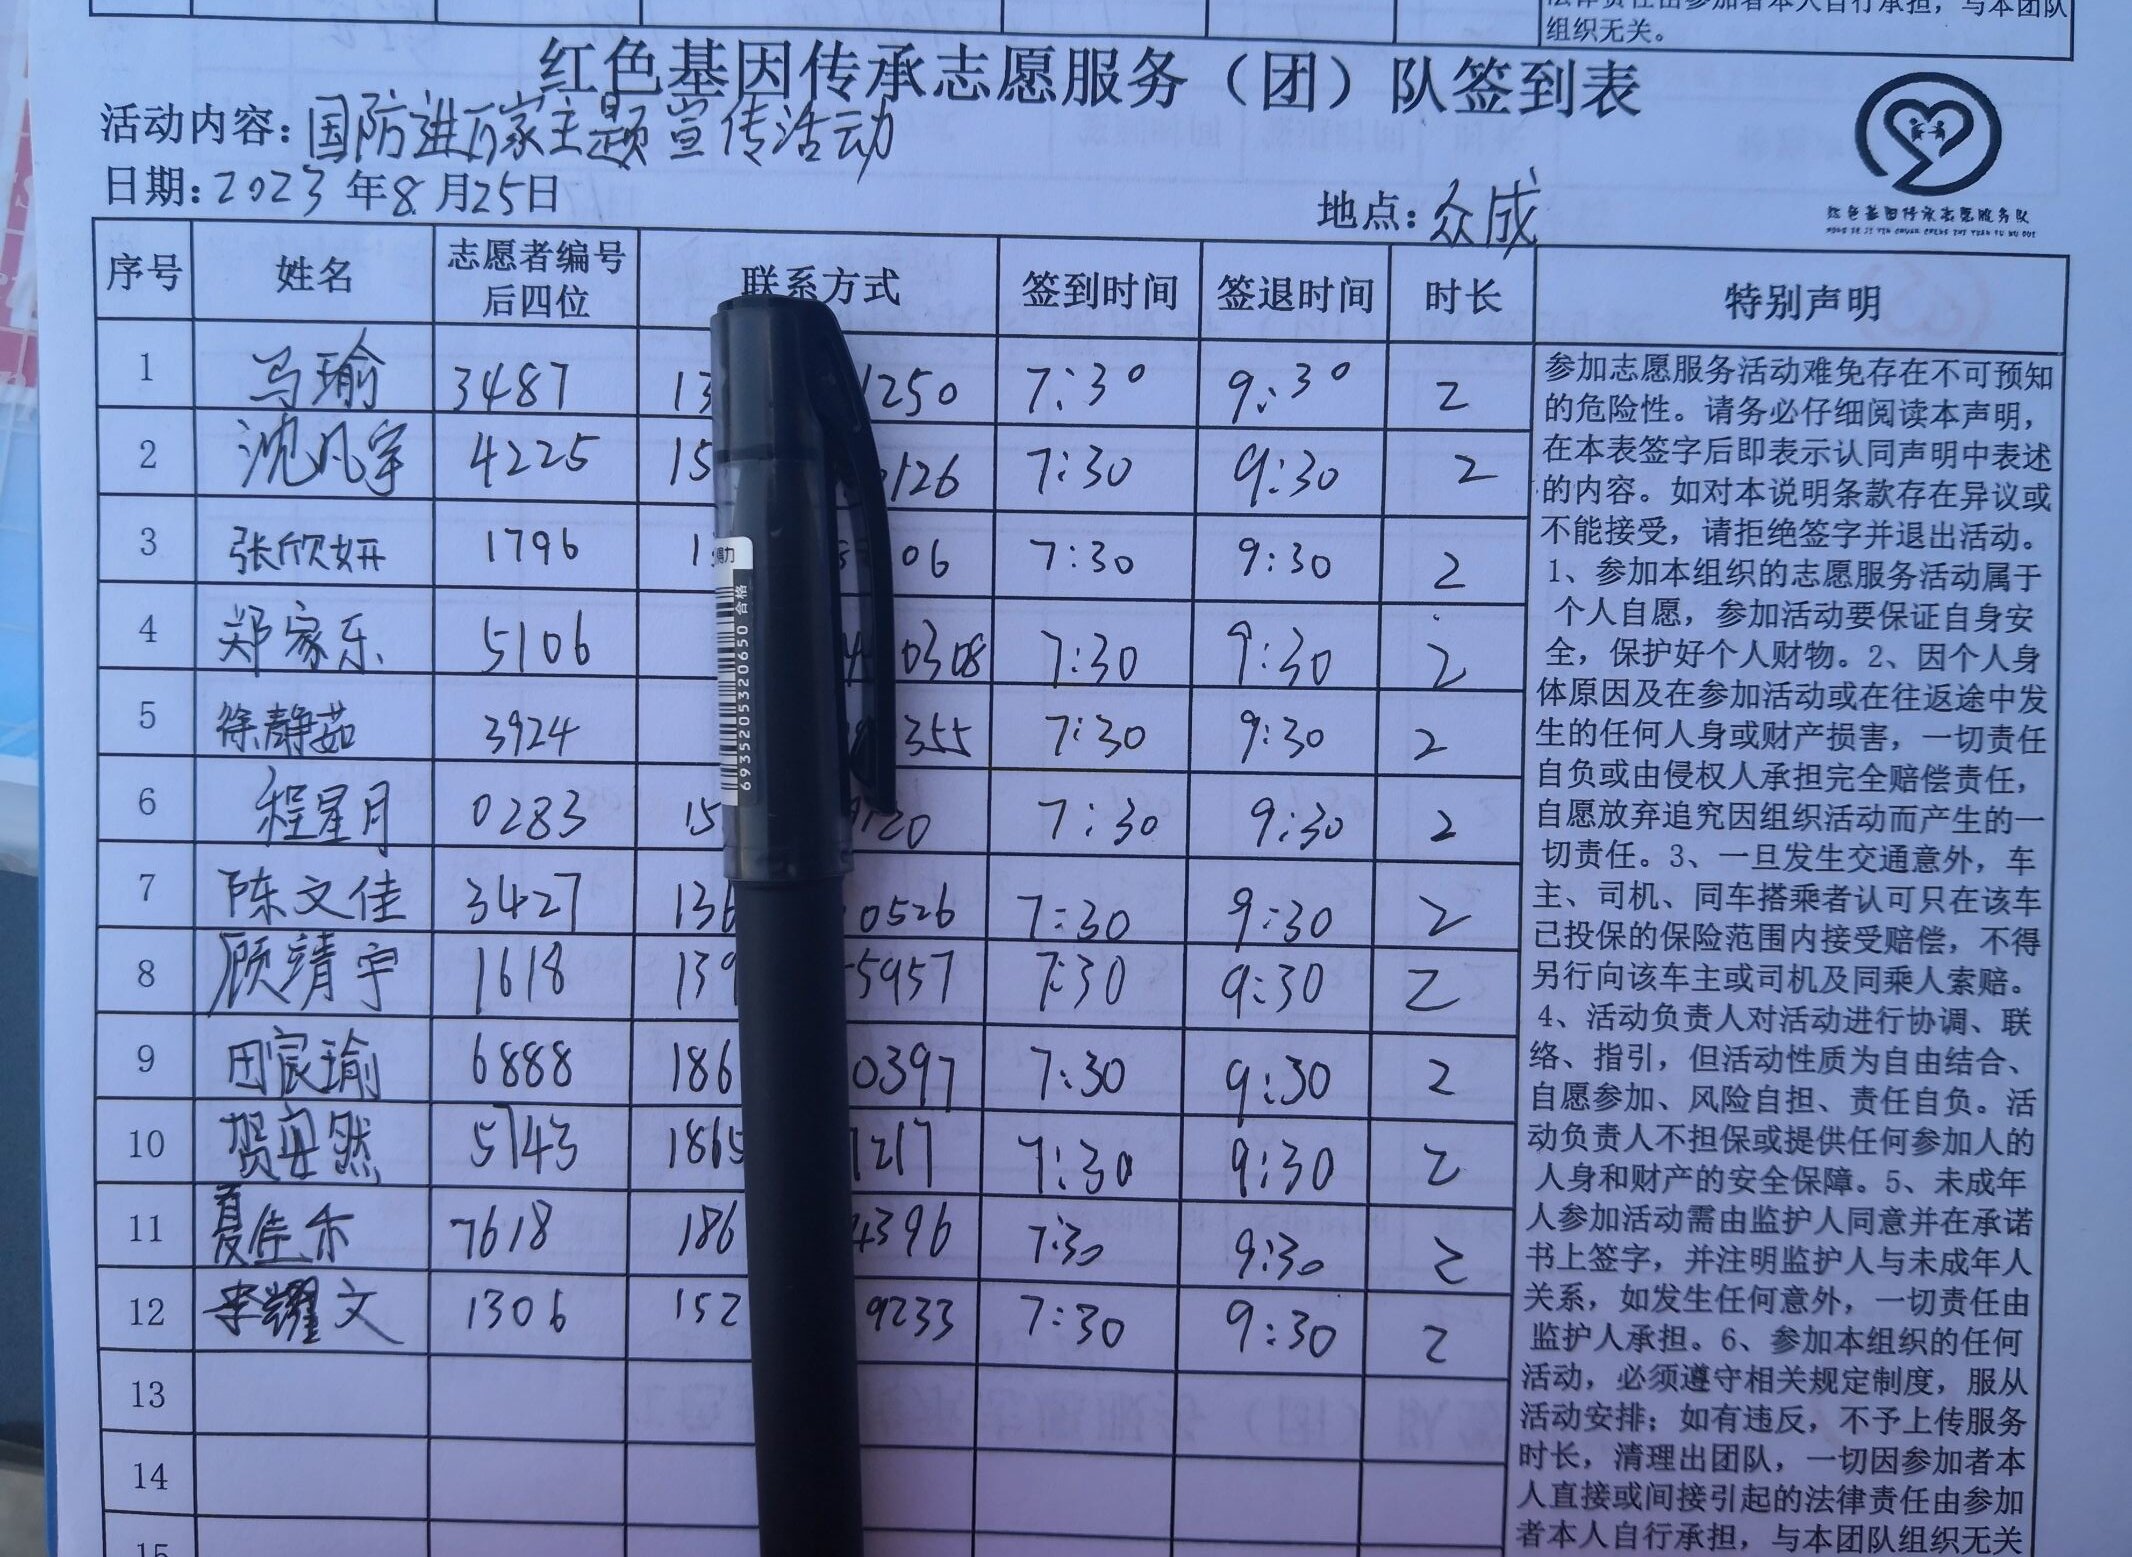 组织无关。
红色基因传承志愿服务（团）队签到表
活动内容：国防进万家主题宣传活动
日期：2023年8月25日
地点：众成
红色基因传承志愿服务队
HONG SE JI YIN CHUAN CHENG ZHI YUAN FU WU DUI
序号 姓名 志愿者编号后四位 联系方式 签到时间 签退时间 时长 特别声明
1 马瑜 3487 13 1250 7:30 9:30 2
2 沈凡宇 4225 15 0126 7:30 9:30 2
3 张欣妍 1796 1 06 7:30 9:30 2
4 郑家乐 5106 0308 7:30 9:30 2
5 徐静茹 3924 355 7:30 9:30 2
6 程星月 0283 15 9120 7:30 9:30 2
7 陈文佳 3427 136 0526 7:30 9:30 2
8 顾靖宇 1618 139 5957 7:30 9:30 2
9 田宸瑜 6888 186 0397 7:30 9:30 2
10 贺安然 5743 1865 7217 7:30 9:30 2
11 夏佳禾 7618 186 4396 7:30 9:30 2
12 李耀文 1306 152 9233 7:30 9:30 2
13
14
15
得力
6935205320650 合格
参加志愿服务活动难免存在不可预知
的危险性。请务必仔细阅读本声明，
在本表签字后即表示认同声明中表述
的内容。如对本说明条款存在异议或
不能接受，请拒绝签字并退出活动。
1、参加本组织的志愿服务活动属于
个人自愿，参加活动要保证自身安
全，保护好个人财物。2、因个人身
体原因及在参加活动或在往返途中发
生的任何人身或财产损害，一切责任
自负或由侵权人承担完全赔偿责任，
自愿放弃追究因组织活动而产生的一
切责任。3、一旦发生交通意外，车
主、司机、同车搭乘者认可只在该车
已投保的保险范围内接受赔偿，不得
另行向该车主或司机及同乘人索赔。
4、活动负责人对活动进行协调、联
络、指引，但活动性质为自由结合、
自愿参加、风险自担、责任自负。活
动负责人不担保或提供任何参加人的
人身和财产的安全保障。5、未成年
人参加活动需由监护人同意并在承诺
书上签字，并注明监护人与未成年人
关系，如发生任何意外，一切责任由
监护人承担。6、参加本组织的任何
活动，必须遵守相关规定制度，服从
活动安排；如有违反，不予上传服务
时长，清理出团队，一切因参加者本
人直接或间接引起的法律责任由参加
者本人自行承担，与本团队组织无关